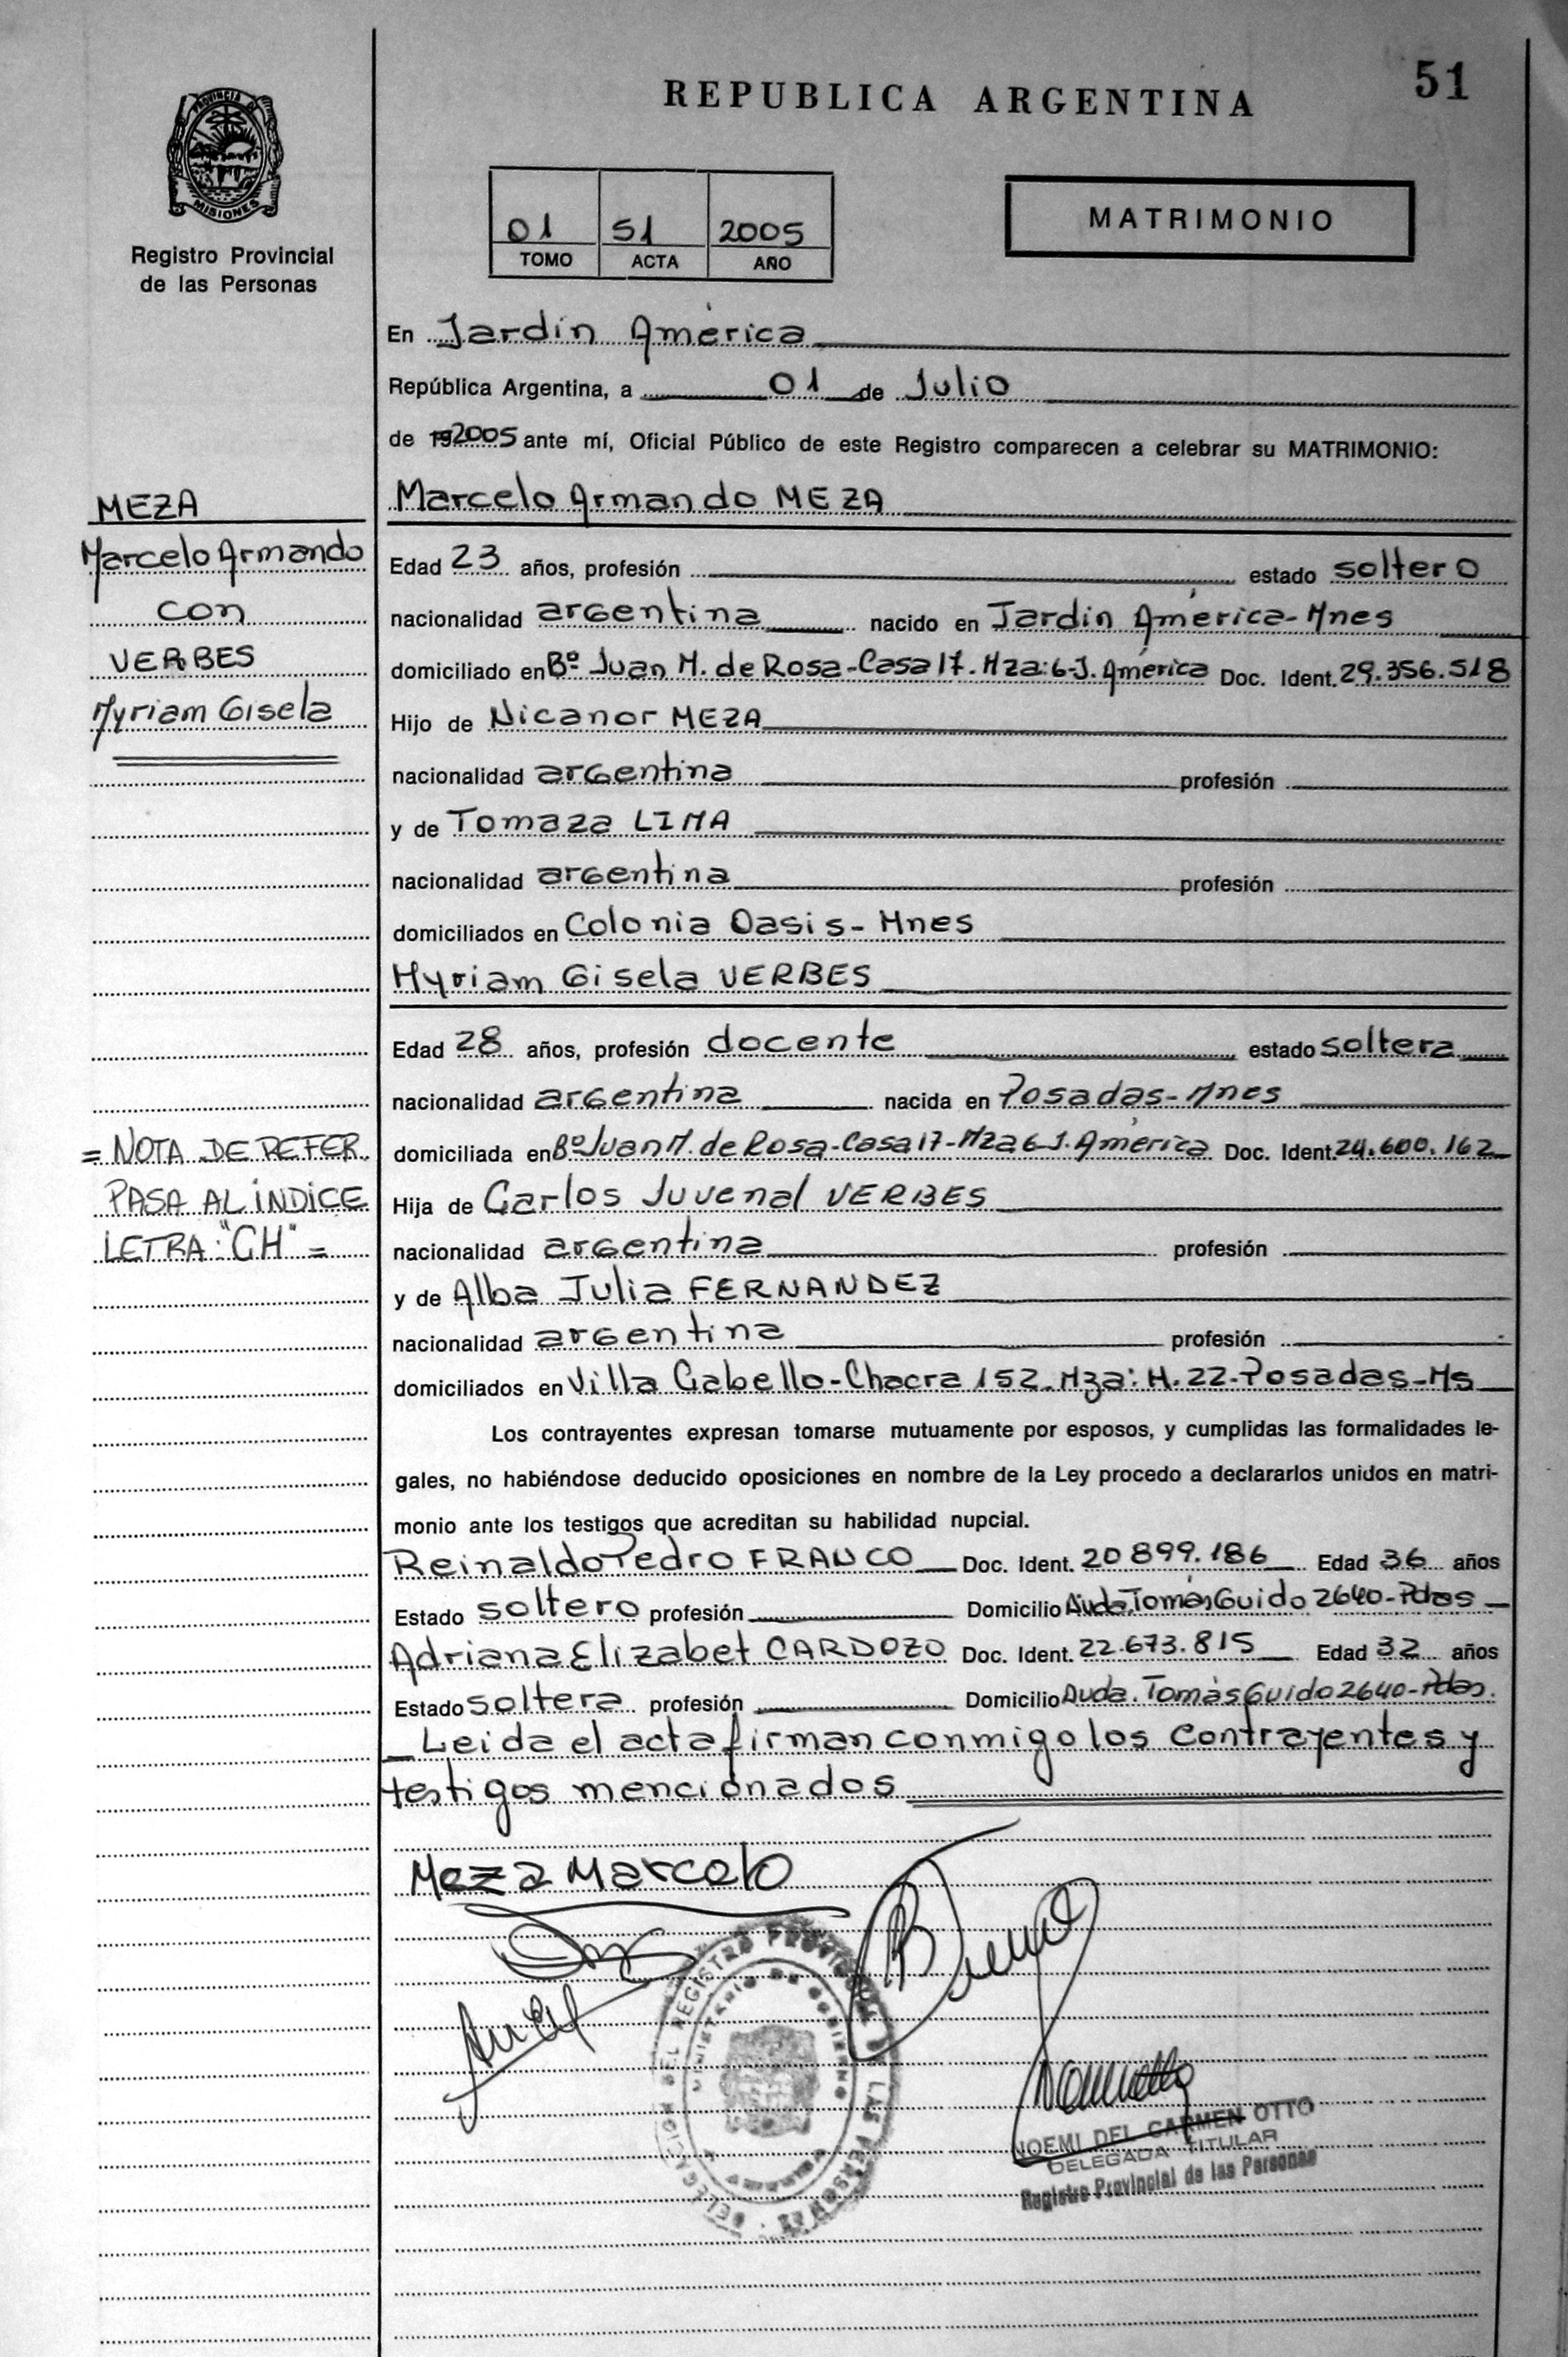 REPUBLICA ARGENTINA
51
PROVINCIA DE
MISIONES
Registro Provincial
de las Personas
01 51 2005
TOMO ACTA AÑO
MATRIMONIO
En Jardín América
República Argentina, a 01 de Julio
de 192005 ante mí, Oficial Público de este Registro comparecen a celebrar su MATRIMONIO:
MEZA
Marcelo Armando
con
VERBES
Myriam Gisela
Marcelo Armando MEZA
Edad 23 años, profesión estado soltero
nacionalidad argentina nacido en Jardín América-Mnes
domiciliado en Bº Juan M. de Rosa-Casa 17-Mza:6-J. América Doc. Ident. 29.356.518
Hijo de Nicanor MEZA
nacionalidad argentina profesión
y de Tomaza LIMA
nacionalidad argentina profesión
domiciliados en Colonia Oasis-Mnes
Myriam Gisela VERBES
Edad 28 años, profesión docente estado soltera
nacionalidad argentina nacida en Posadas-Mnes
domiciliada en Bº Juan M. de Rosa-Casa 17-Mza 6-J. América Doc. Ident. 24.600.162
= NOTA DE REFER.
PASA AL ÍNDICE
LETRA: "CH" =
Hija de Carlos Juvenal VERBES
nacionalidad argentina profesión
y de Alba Julia FERNANDEZ
nacionalidad argentina profesión
domiciliados en Villa Cabello-Chacra 152-Mza: H.22-Posadas-Ms
Los contrayentes expresan tomarse mutuamente por esposos, y cumplidas las formalidades le-
gales, no habiéndose deducido oposiciones en nombre de la Ley procedo a declararlos unidos en matri-
monio ante los testigos que acreditan su habilidad nupcial.
Reinaldo Pedro FRANCO Doc. Ident. 20 899.186 Edad 36 años
Estado soltero profesión Domicilio Avda. Tomás Guido 2640-Pdas
Adriana Elizabet CARDOZO Doc. Ident. 22.673.815 Edad 32 años
Estado soltera profesión Domicilio Avda. Tomás Guido 2640-Pdas.
Leida el acta firman conmigo los contrayentes y
testigos mencionados
Meza Marcelo
DELEGACION DEL REGISTRO PROVINCIAL DE LAS PERSONAS
MINISTERIO DE GOBIERNO
NOEMI DEL CARMEN OTTO
DELEGADA TITULAR
Registro Provincial de las Personas